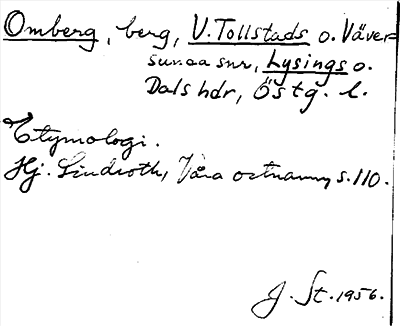 Omberg, berg, V. Tollstads o. Väver-
sunda snr, Lysings o.
Dals hdr, Östg. l.
Etymologi.
Hj. Lindroth, Våra ortnamn s. 110.
J. St. 1956.